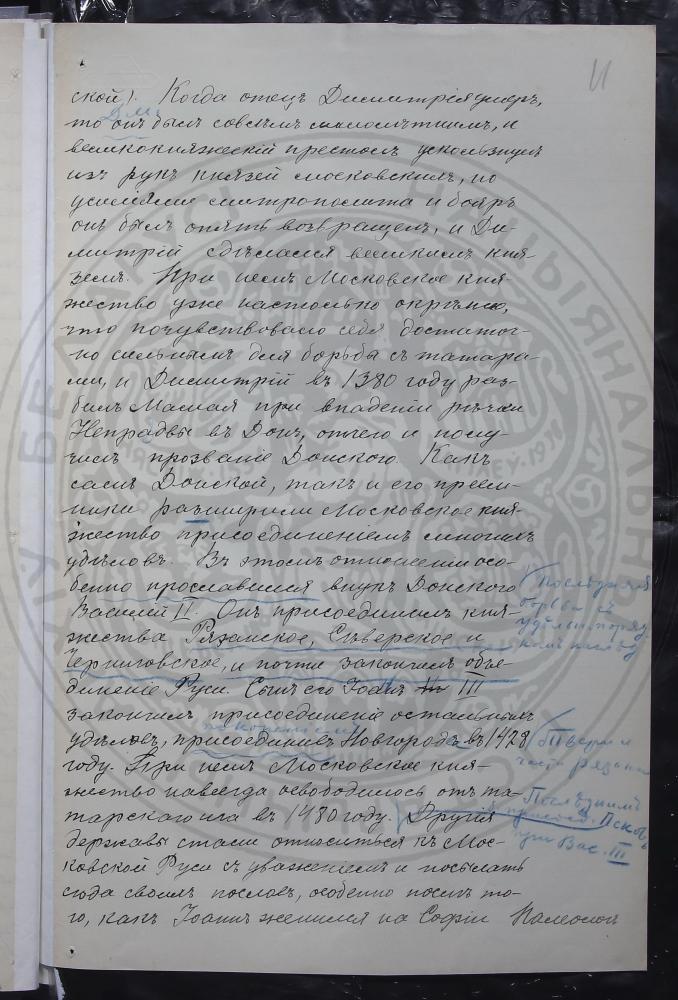 11
ской). Когда отецъ Димитрія умеръ,
то онъ былъ совсѣмъ малолѣтнимъ, и
великокняжескій престолъ ускользнулъ
изъ рукъ князей московскихъ, но
усиліями митрополита и бояръ
онъ былъ опять возвращенъ, и Ди-
митрій сдѣлался великимъ кня-
земъ. При немъ Московское кня-
жество уже настолько окрѣпло,
что почувствовало себя достаточ-
но сильнымъ для борьбы съ татара-
ми, и Димитрій въ 1380 году раз-
билъ Мамая при впаденіи рѣчки
Непрядвы въ Донъ, отчего и полу-
чилъ прозваніе Донского. Какъ
самъ Донской, такъ и его преем-
ники разширили Московское кня-
жество присоединеніемъ многихъ
удѣловъ. Въ этомъ отношеніи осо-
бенно прославился внукъ Донского
Василій II. Онъ присоединилъ кня-
жества Рязанское, Сѣверское и
Черниговское, и почти закончилъ объе-
диненіе Руси. Сынъ его Іоанъ III
закончилъ присоединеніе остальныхъ
удѣловъ, присоединивъ Новгородъ въ 1478
году. При немъ Московское кня-
жество навсегда освободилось отъ та-
тарскаго ига въ 1480 году. Другія
державы стали относиться къ Мос-
ковской Руси съ уваженіемъ и посылать
сюда своихъ пословъ, особенно послѣ то-
го, какъ Іоаннъ женился на Софіи Палеолог
послѣдняя
борьба съ
удѣльн. поряд.
Твери и
части рязани
Послѣднимъ
присоед. Псковъ
при Вас. III